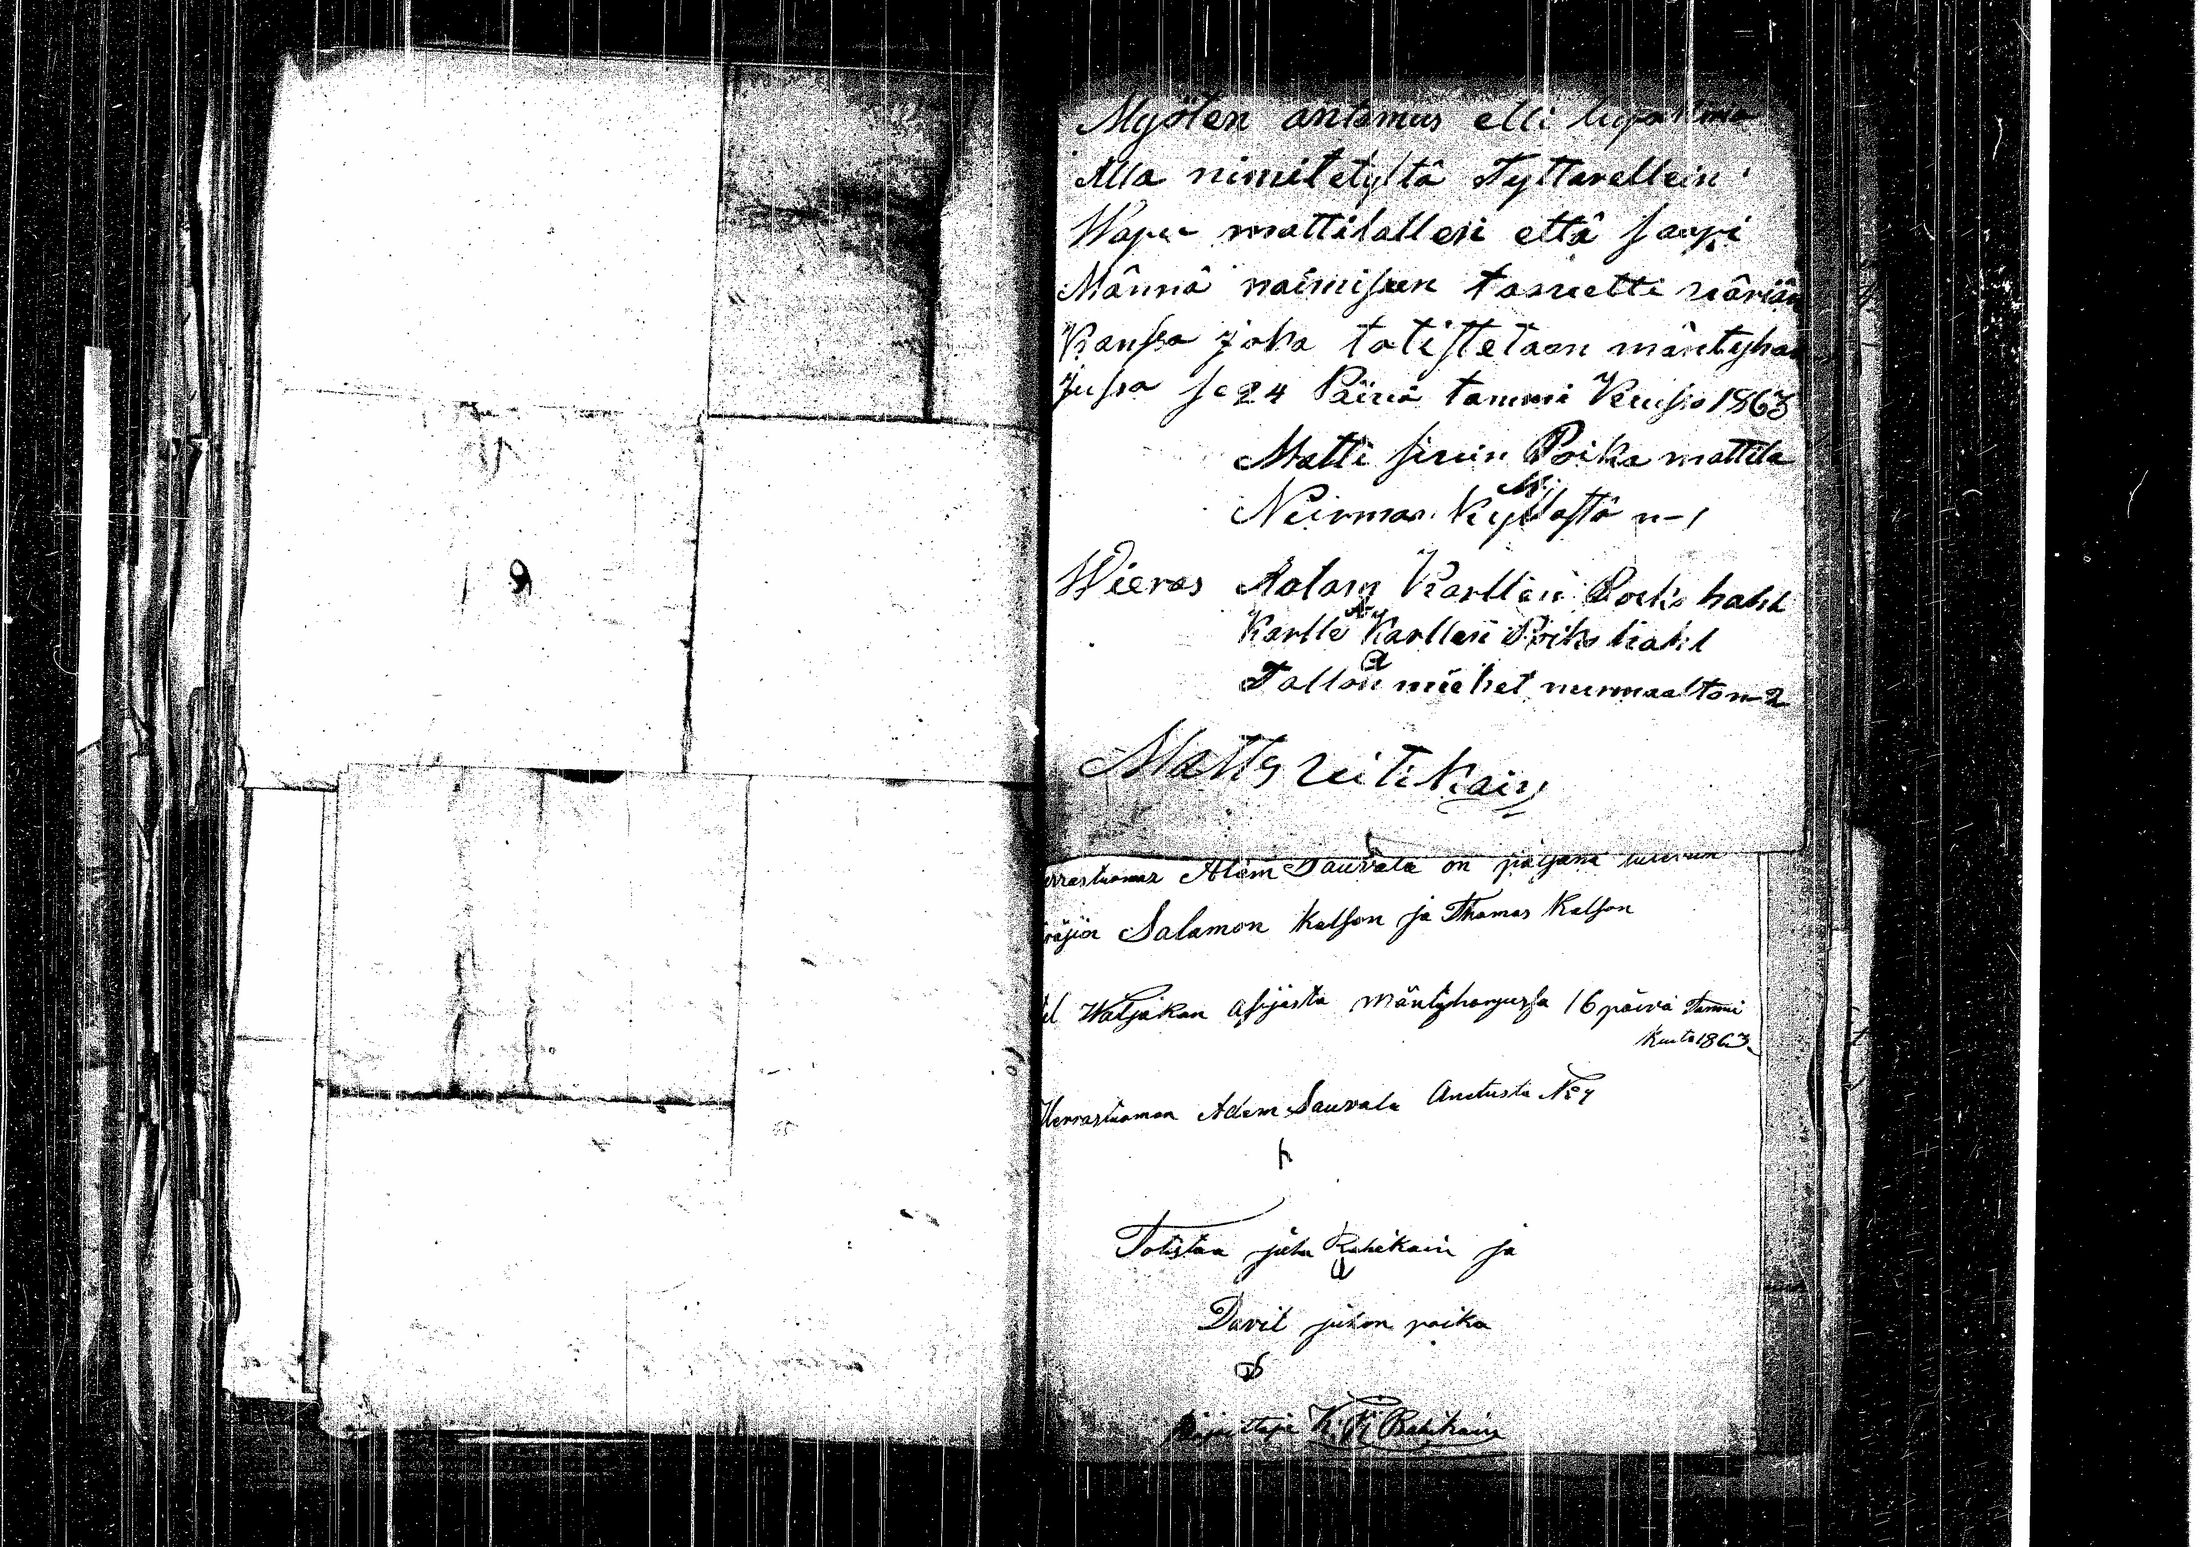 9
Myöten antamus elli lupaamus
Alla nimitetyltä Tyttarellein
Wapu mattilallen että saapi
Männä naimiseen
Kanssa joka totistetaan mäntyhar
jussa se 24 Päivä tammi Kuusa 1863
Matti simin Poika mattila
Nurmaa Kyllästä n-1
Wieras Aatam Karllin Poika hahl
Karlle Karllen Poika hahl
Tallon miehet nurmaalta n-2
Matts reitikain
errastuomar Adam Sauvala on
Salamon Kalson ja Thomas Kalson
Waljakan asijasta mäntyharjussa 16 päivä Tammi
Kuuta 1863
Herrastuoman Adam Sauvala Anetusta No 7
Totistaa juha Rahikain ja
Davit juhon poika
Kirjuttaja K. K Rahikain